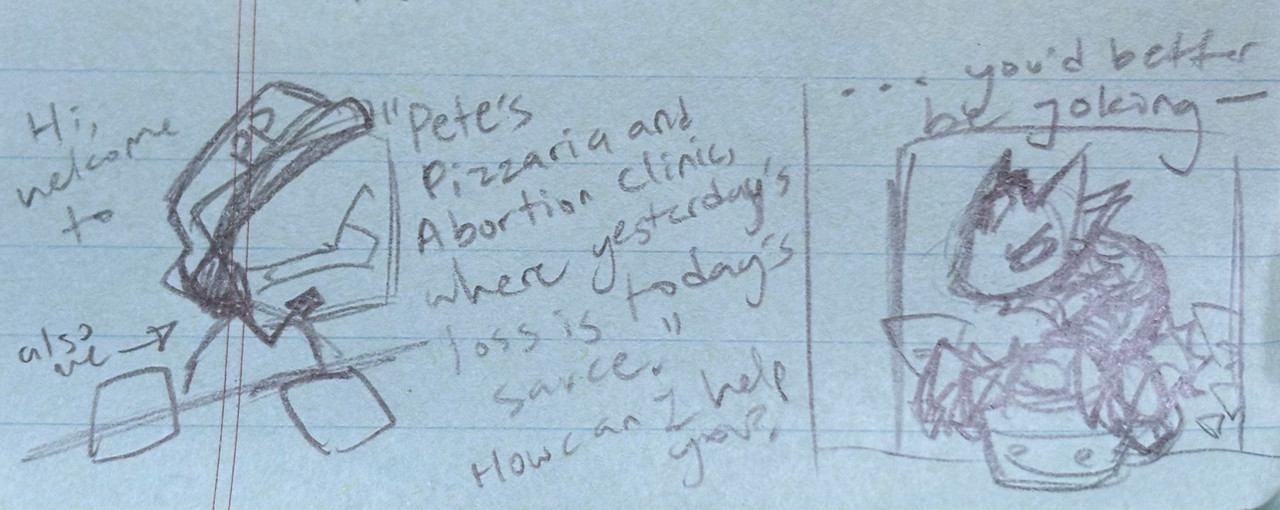 Hi,
welcome
to
"Pete's
Pizzaria and
Abortion Clinic,
where yesterday's
loss is today's
sauce."
How can I help
you?
also
me
... you'd better
be joking—